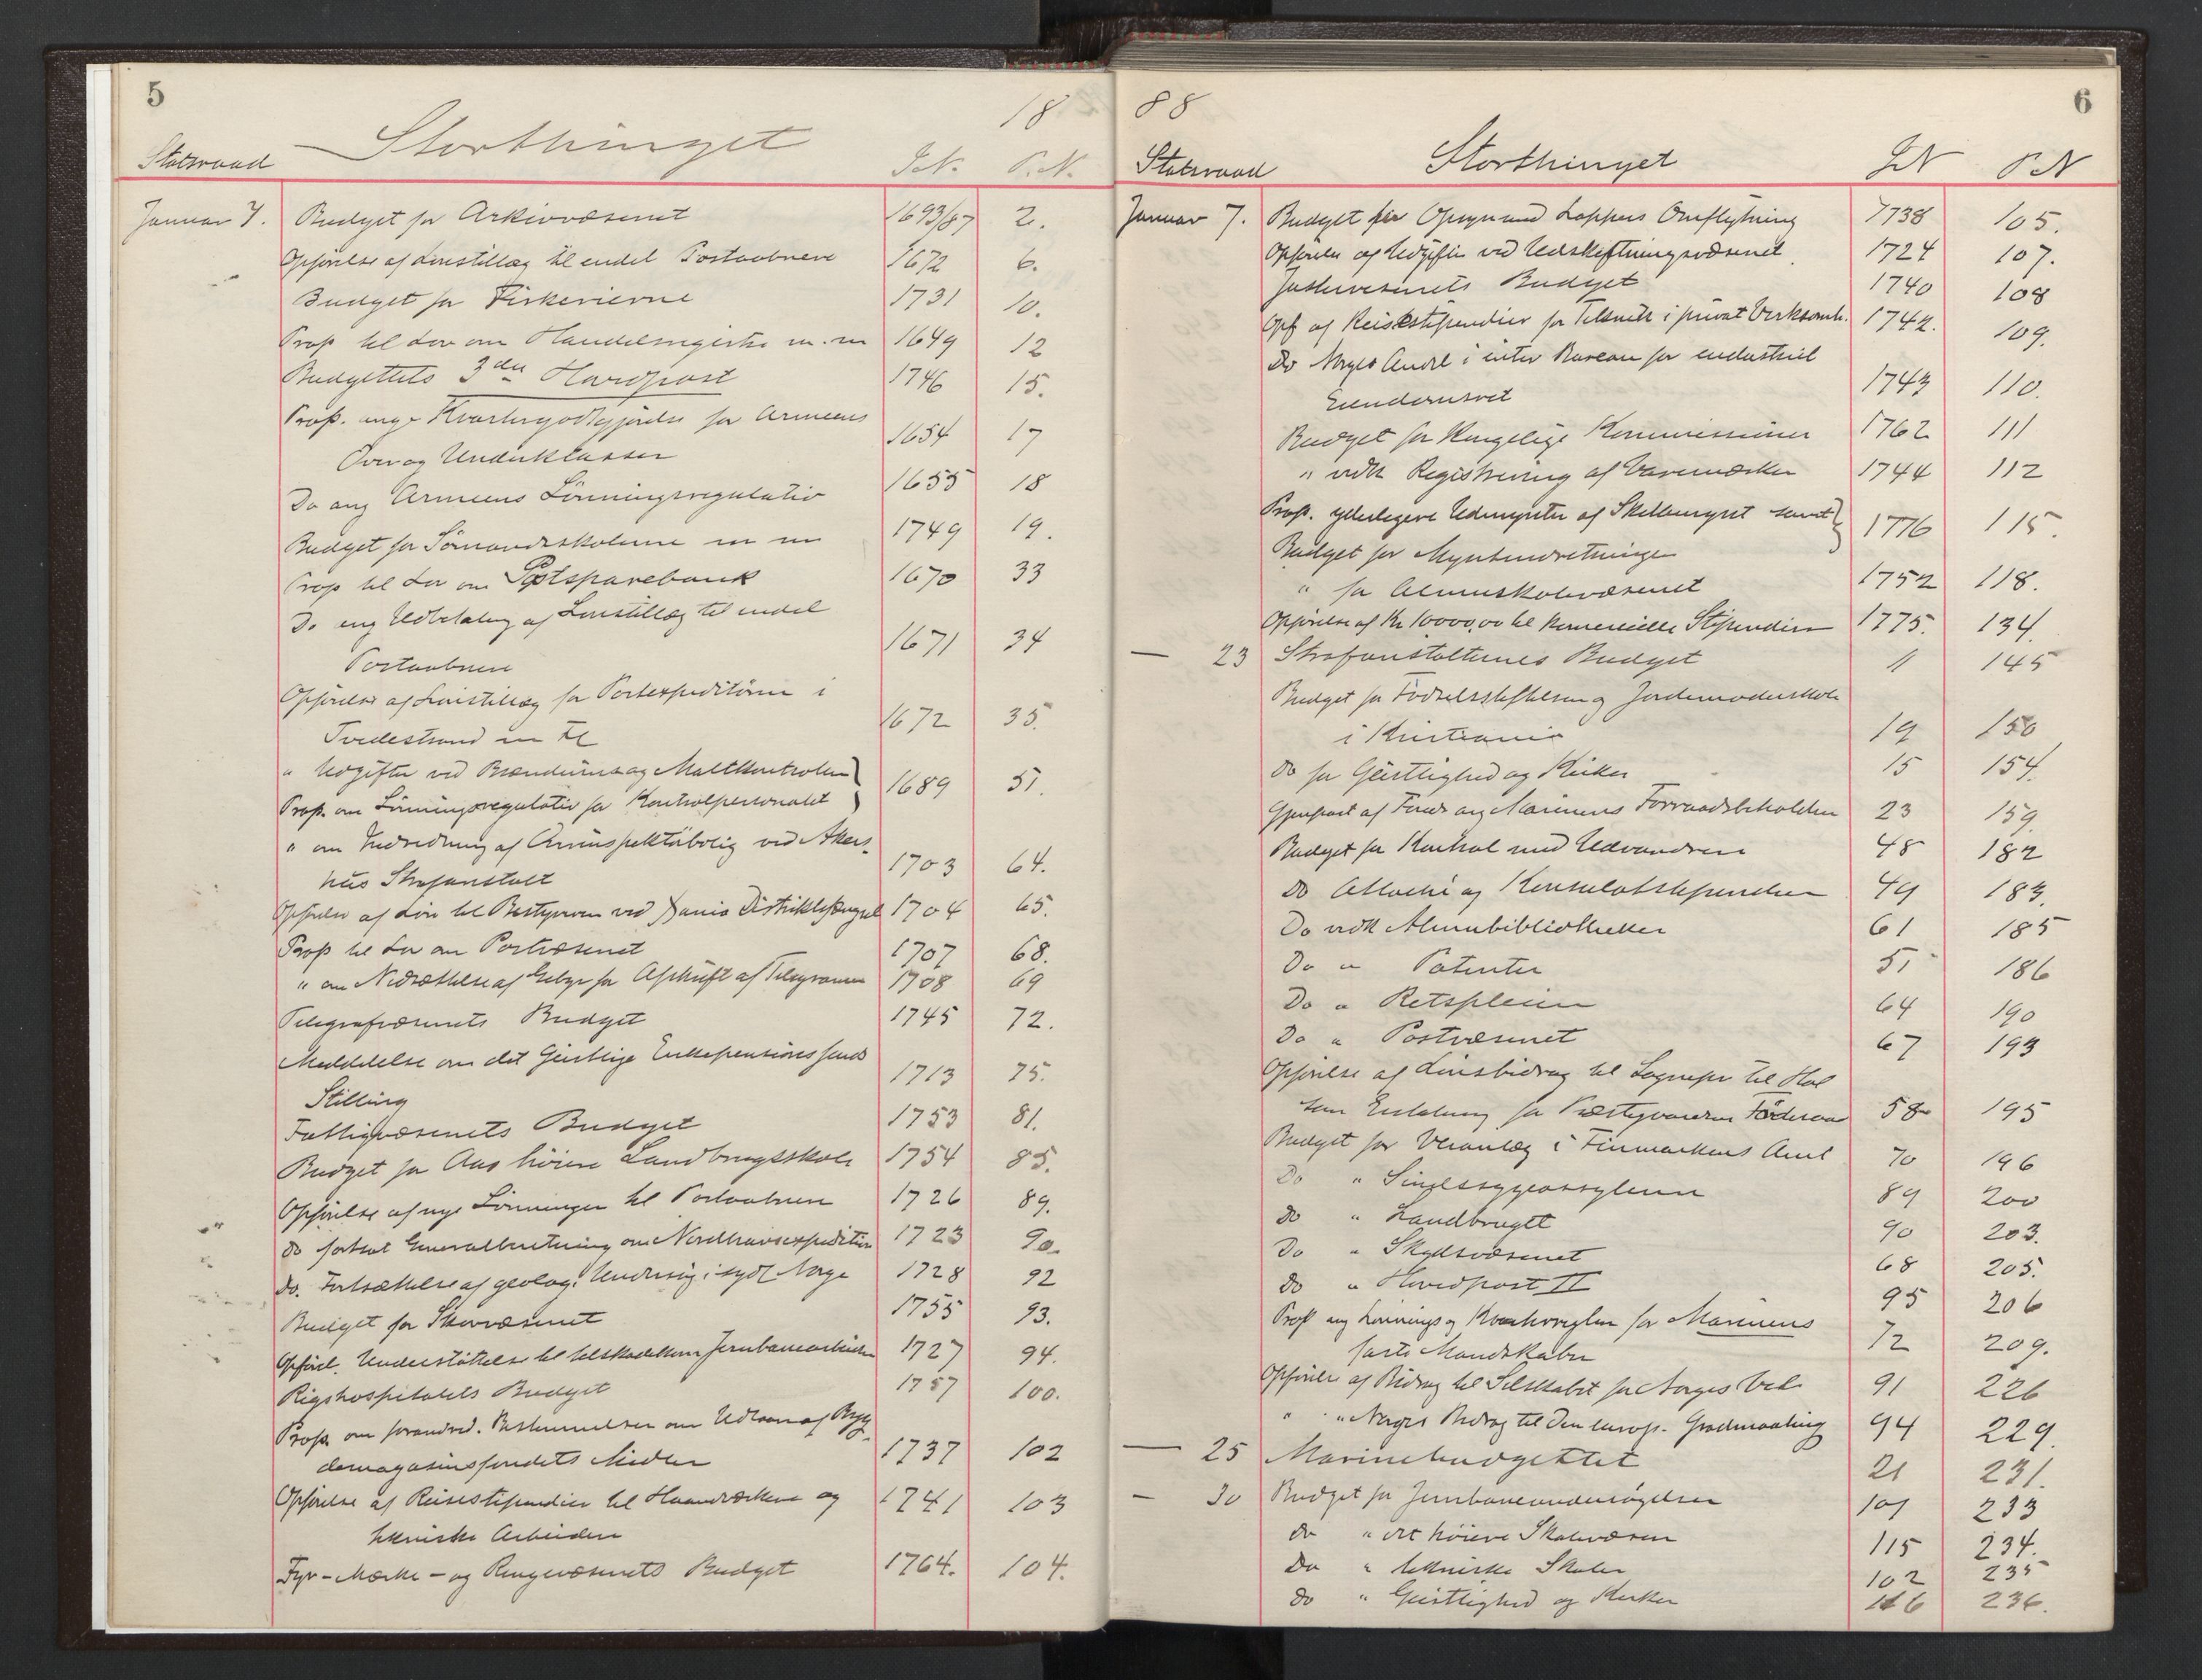 5
18
Storthinget
Statsraad J.N. P.N.
Januar 7. Budget for Arkivvæsenet 1693/87 2.
Opførelse af Lønstillæg til endel Postaabnere 1672 6.
Budget for Fiskerierne 1731 10.
Prop til Lov om Handelsregistre m. m 1649 12
Budgettets 3die Hovedpost 1746 15.
Prop. ang. Kvartergodtgjørelse for Armeens
Over og Underklasser 1654 17
Do ang Armeens Lønningsregulativ 1655 18
Budget for Sømandsskolerne m m 1749 19.
Prop til Lov om Postsparebank 1670 33
Do ang Udbetaling af Lønstillæg til endel
Postaabnere 1671 34
Opførelse af Lønstillæg for Postexpeditøren i
Tvedestrand m fl 1672 35.
" Udgifter ved Brændevins og Maltkontrolen
Prop. om Lønningsregulativ for Kontrolpersonalet 1689 51.
" om Indredning af Aminspektørbolig ved Akers-
hus Strafanstalt 1703 64.
Opførelse af Løn til Bestyreren ved Distriktsfængsel 1704 65.
Prop til Lov om Postvæsenet 1707 68.
" om Nedsættelse af Gebyr for Afskrift af Telegrammer 1708 69
Telegrafvæsenets Budget 1745 72.
Meddelelse om det Geistlige Enkepensionsfonds
Stilling 1713 75.
Fattigvæsenets Budget 1753 81.
Budget for Aas høiere Landbrugsskole 1754 85.
Opførelse af nye Lønninger til Postaabnere 1726 89.
do fortsat Generalberetning om Nordhavsexpeditionen 1723 90.
do. Fortsættelse af geolog. Undersøg. i sydl Norge 1728 92
Budget for Skovvæsenet 1755 93.
Opførel. Understøttelse til tilskadekomne Jernbanearbeidere 1727 94.
Rigshospitalets Budget 1757 100.
Prop. om forandred. Bestemmelser om Udlaan af Byg-
demagasinsfondets Midler 1737 102
Opførelse af Reisestipendier til Haandværkere og
tekniske Arbeidere 1741 103
Fyr- Mærke- og Ringevæsenets Budget 1764. 104.
88
6
Statsraad Storthinget JN P N
Januar 7. Budget for Opsyn med Lappers Omflytning 1738 105.
Opførelse af Udgifter ved Udskiftningsvæsenet 1724 107.
Justervæsenets Budget 1740 108
Opf af Reisestipendier for Teknik i privat Virksomh. 1742. 109.
Do Norges Andel i inter Bureau for industriel
Eiendomsret 1743 110.
Budget for Kongelige Kommissioner 1762 111
" vedk Registrering af Varemærker 1744 112
Prop. yderligere Udmynter af Skillemynt samt
Budget for Myntindretningen 1776 115.
" for Almueskolevæsenet 1752 118.
Opførelse af Kr 10000,00 til kommercielle Stipendier 1775. 134.
— 23 Strafanstalternes Budget 11 145
Budget for Fødselsstiftelsen og Jordemoderskole
i Kristiania 19 150
do for Geistlighed og Kirker 15 154.
Gjenpart af Foredr ang Marinens Forraadsbeholdn 23 159.
Budget for Kontrol med Udvandrere 48 182
do Attaché og Konsulatstipendier 49 183.
Do vedk Almuebibliotheker 61 185
Do " Patenter 51 186
Do " Retspleien 64 190
Do " Postvæsenet 67 193
Opførelse af Lønsbidrag til Sognepr til Hol
som Erstatning for Præstegaardens Føderaad 58 195
Budget for Veianlæg i Finmarkens Amt 70 196
Do " Sindssygeasylerne 89 200
do " Landbruget 90 203.
Do " Skydsvæsenet 68 205.
do " Hovedpost II 95 206
Prop ang Lønnings og Kvarterregler for Marinens
faste Mandskaber 72 209.
Opførelse af Bidrag til Selskabet for Norges Vel 91 226
" " Norges Bidrag til Den europ. Gradmaaling 94 229.
— 25 Marinebudgettet 21 231.
— 30 Budget for Jernbaneundersøgelser 101 233
do " det høiere Skolevæsen 115 234.
Do " tekniske Skoler 102 235
do " Geistlighed og Kirker 116 236.